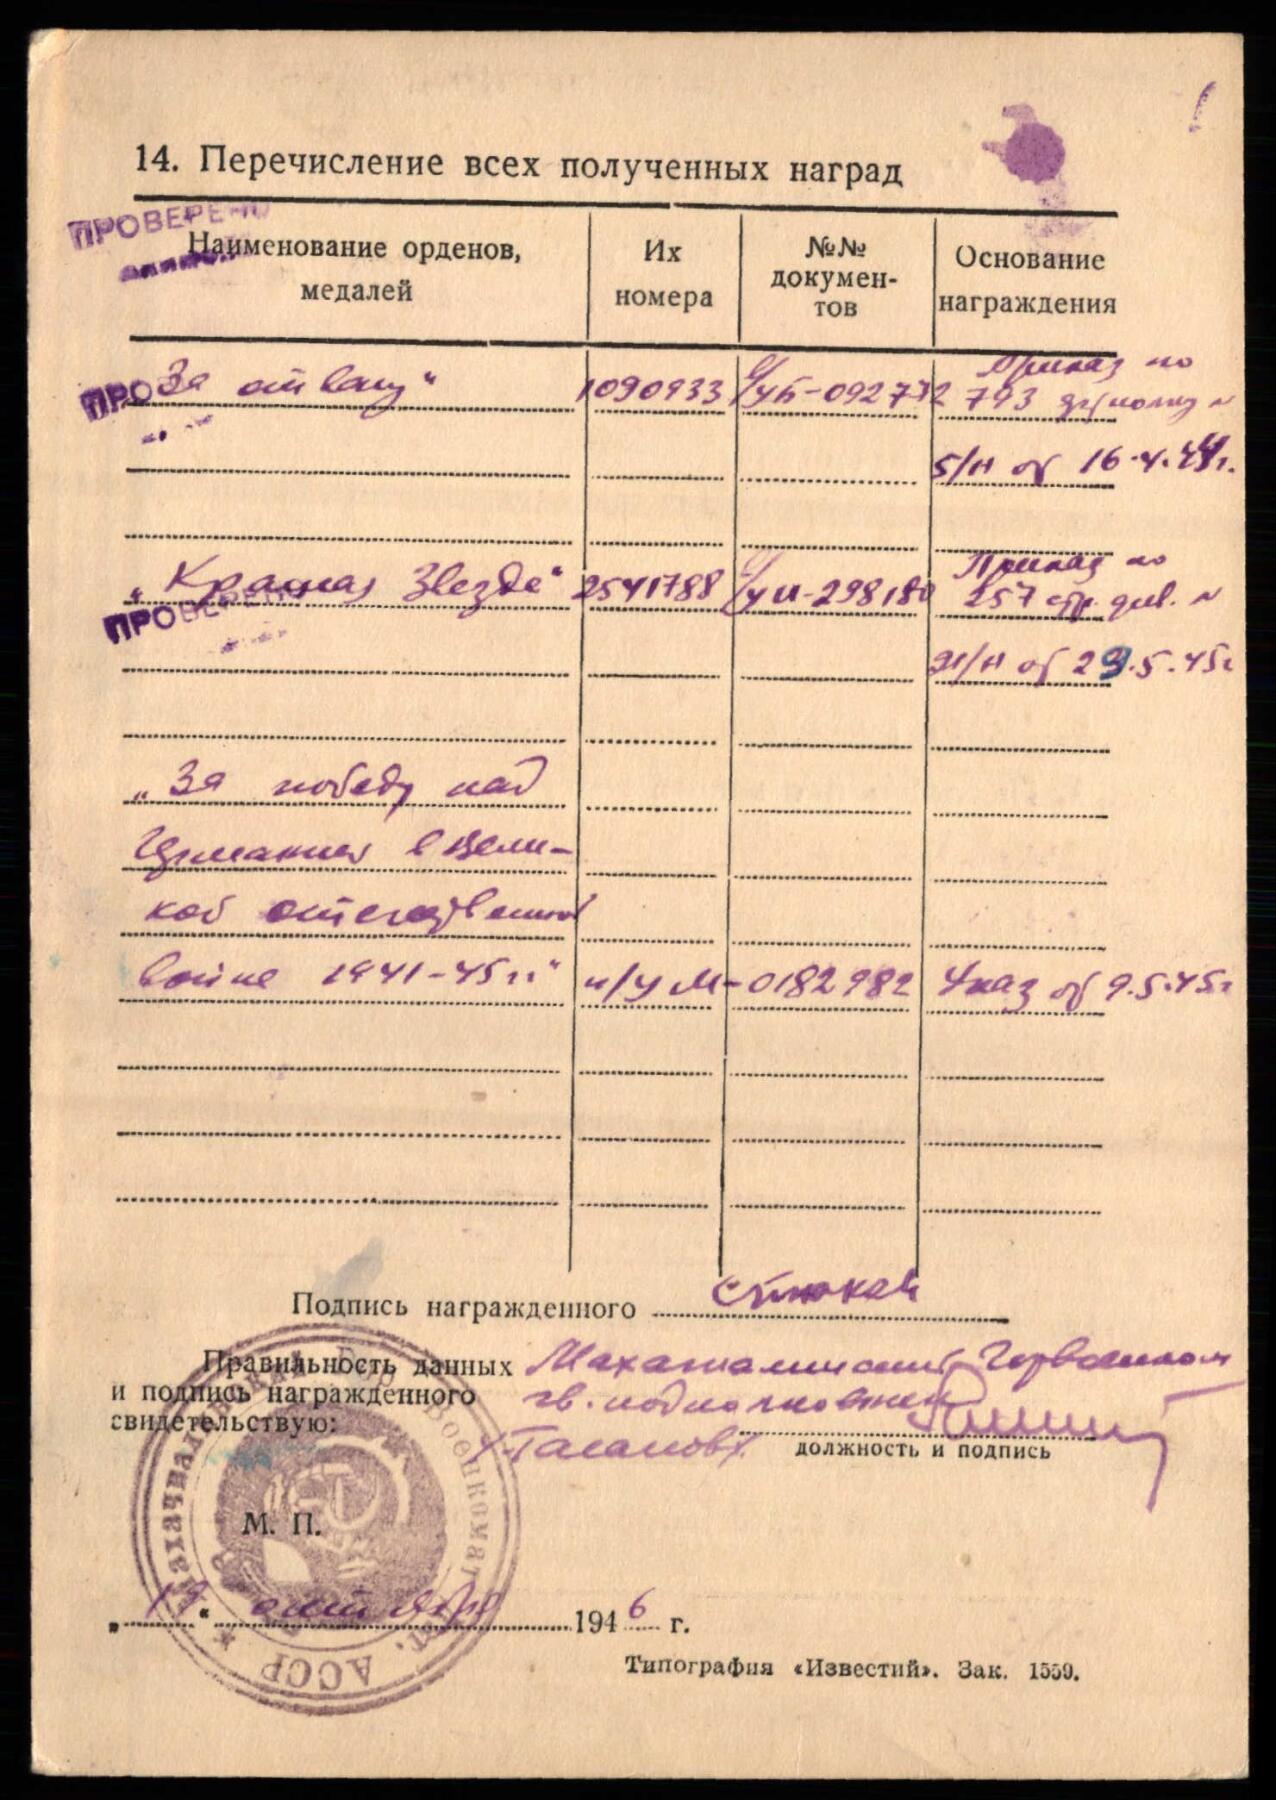 14. Перечисление всех полученных наград
ПРОВЕРЕНО
Наименование орденов,
медалей
Их
номера
№№
докумен-
тов
Основание
награждения
ПРО
За отвагу"
1090933
УБ-092772
Приказ по
793
б/н от 16.4.44г.
„Красная Звезда"
2541788
298180
Приказ по
257 стр. див. N
ПРОВЕРЕНО
/н от 29.5.45г
„За победу над
Германией в Вели-
кой отечественной
войне 1941-45гг"
М-0182982
Указ от 9.5.45г
Подпись награжденного
Правильность данных
и подпись награжденного
свидетельствую:
Махачкалинский Горвоенком
гв. подполковник
должность и подпись
М. П.
„19" октября 1946 г.
Типография «Известий». Зак. 1559.